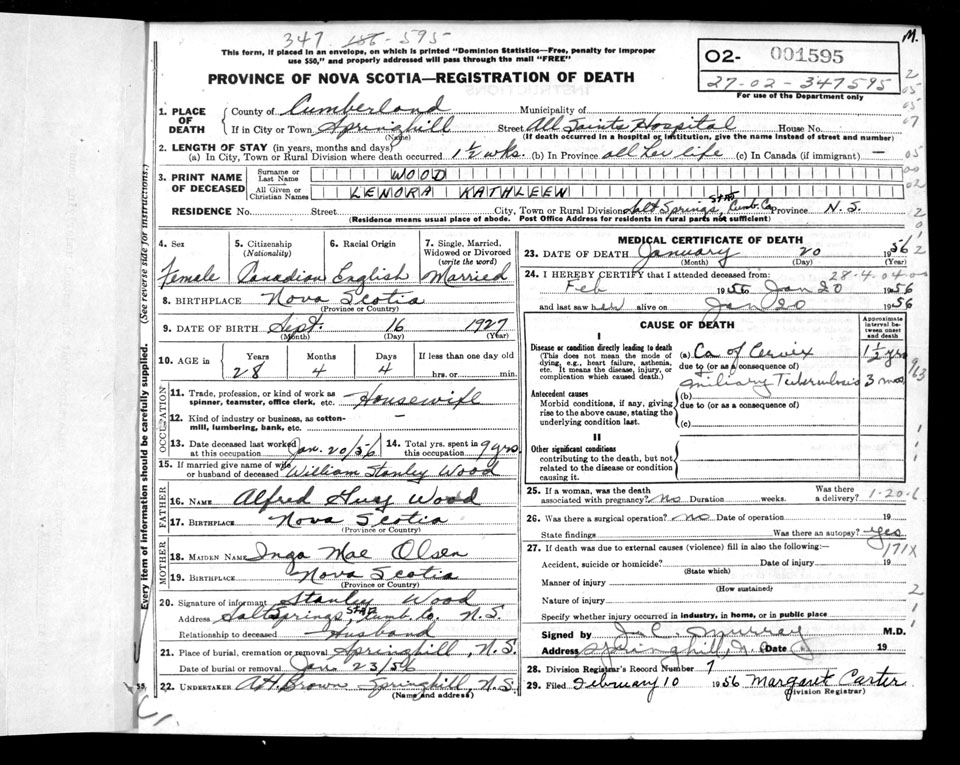 347 186-595
This form, if placed in an envelope, on which is printed "Dominion Statistics—Free, penalty for improper
use $50," and properly addressed will pass through the mail "FREE"
PROVINCE OF NOVA SCOTIA—REGISTRATION OF DEATH
M.
O2- 001595
27-02-347595
For use of the Department only
1. PLACE OF DEATH
County of Cumberland Municipality of
If in City or Town Springhill Street All Saints Hospital House No.
(Name) (If death occurred in a hospital or institution, give the name instead of street and number)
2. LENGTH OF STAY (in years, months and days)
(a) In City, Town or Rural Division where death occurred 1½ wks. (b) In Province all her life (c) In Canada (if immigrant) —
3. PRINT NAME OF DECEASED
Surname or Last Name WOOD
All Given or Christian Names LENORA KATHLEEN
RESIDENCE No. Street City, Town or Rural Division Salt Springs, Stat Cumb. Co. Province N.S.
(Residence means usual place of abode. Post Office Address for residents in rural parts not sufficient)
4. Sex
Female
5. Citizenship (Nationality)
Canadian
6. Racial Origin
English
7. Single, Married, Widowed or Divorced (write the word)
Married
8. BIRTHPLACE Nova Scotia
(Province or Country)
9. DATE OF BIRTH Sept. 16 1927
(Month) (Day) (Year)
10. AGE in Years Months Days If less than one day old
28 4 4 hrs. or min.
OCCUPATION
11. Trade, profession, or kind of work as spinner, teamster, office clerk, etc. Housewife
12. Kind of industry or business, as cotton-mill, lumbering, bank, etc. —
13. Date deceased last worked at this occupation Jan. 20/56
14. Total yrs. spent in this occupation 9 yrs.
15. If married give name of wife or husband of deceased William Stanley Wood
FATHER
16. NAME Alfred Guy Wood
17. BIRTHPLACE Nova Scotia
(Province or Country)
MOTHER
18. MAIDEN NAME Inga Mae Olsen
19. BIRTHPLACE Nova Scotia
(Province or Country)
20. Signature of informant Stanley Wood
Address Salt Springs, Stat Cumb. Co. N.S.
Relationship to deceased Husband
21. Place of burial, cremation or removal Springhill, N.S.
Date of burial or removal Jan. 23/56
22. UNDERTAKER A.H. Brown Springhill, N.S.
(Name and address)
MEDICAL CERTIFICATE OF DEATH
23. DATE OF DEATH January 20 1956
(Month) (Day) (Year)
28-4-04
24. I HEREBY CERTIFY that I attended deceased from:
Feb 19 to Jan 20 1956
and last saw her alive on Jan 20 1956
CAUSE OF DEATH
Approximate interval between onset and death
I
Disease or condition directly leading to death
(This does not mean the mode of dying, e.g., heart failure, asthenia, etc. It means the disease, injury, or complication which caused death.)
(a) Ca of Cervix 1½ yrs
due to (or as a consequence of)
Antecedent causes
Morbid conditions, if any, giving rise to the above cause, stating the underlying condition last.
(b) miliary Tuberculosis 3 mos
due to (or as a consequence of)
(c)
II
Other significant conditions
contributing to the death, but not related to the disease or condition causing it.
25. If a woman, was the death associated with pregnancy? No Duration weeks. Was there a delivery? 1-20-6
26. Was there a surgical operation? No Date of operation 19
State findings Was there an autopsy? yes
171X
27. If death was due to external causes (violence) fill in also the following:—
Accident, suicide or homicide? Date of injury 19
(State which)
Manner of injury
(How sustained)
Nature of injury
Specify whether injury occurred in industry, in home, or in public place
Signed by J. C. Murray M.D.
Address Springhill, N.S. Date 19
28. Division Registrar's Record Number 7
29. Filed February 10 1956 Margaret Carter
(Division Registrar)
Every item of information should be carefully supplied. (See reverse side for instructions.)